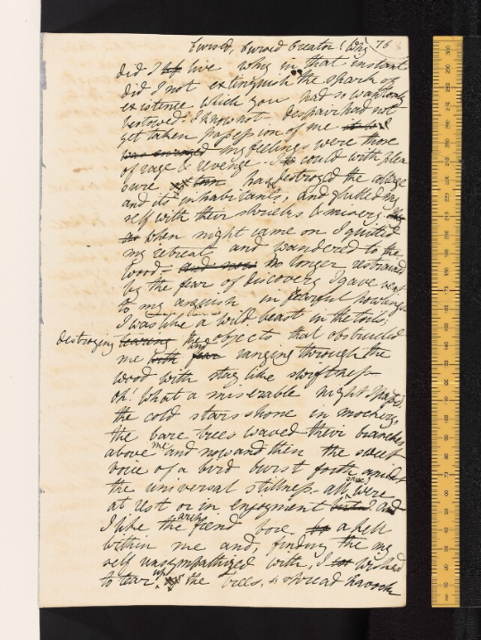 76
Cursed, Cursed Creator! Why
did I live why in that instant
did I not extinguish the spark of
existence which you had so wantonly
bestowed? I know not despair had not
yet taken possession of me
my feelings were those
of rage & revenge - I could with plea
sure have destroyed the cottage
and its inhabitants, and glutted my
self with their shrieks & misery
when night came on I quitted
my retreat and wandered to the
wood - and now no longer restrained
by the fear of discovery I gave vent
to my anguish in fearful howlings
I was like a wild beast in the toils,
destroying tearing the objects that obstructed
me & ranging through the
wood with stag like swiftness
oh! What a miserable night I passed
the cold stars shone in mockery
the bare trees waved their branches
above me and now and then the sweet
voice of a bird burst forth amidst
the universal stillness - all save I were
at rest or in enjoyment
I like the arch fiend bore a hell
within me and, finding my
self unsympathized with, I wished
to tear up the trees, & spread havock